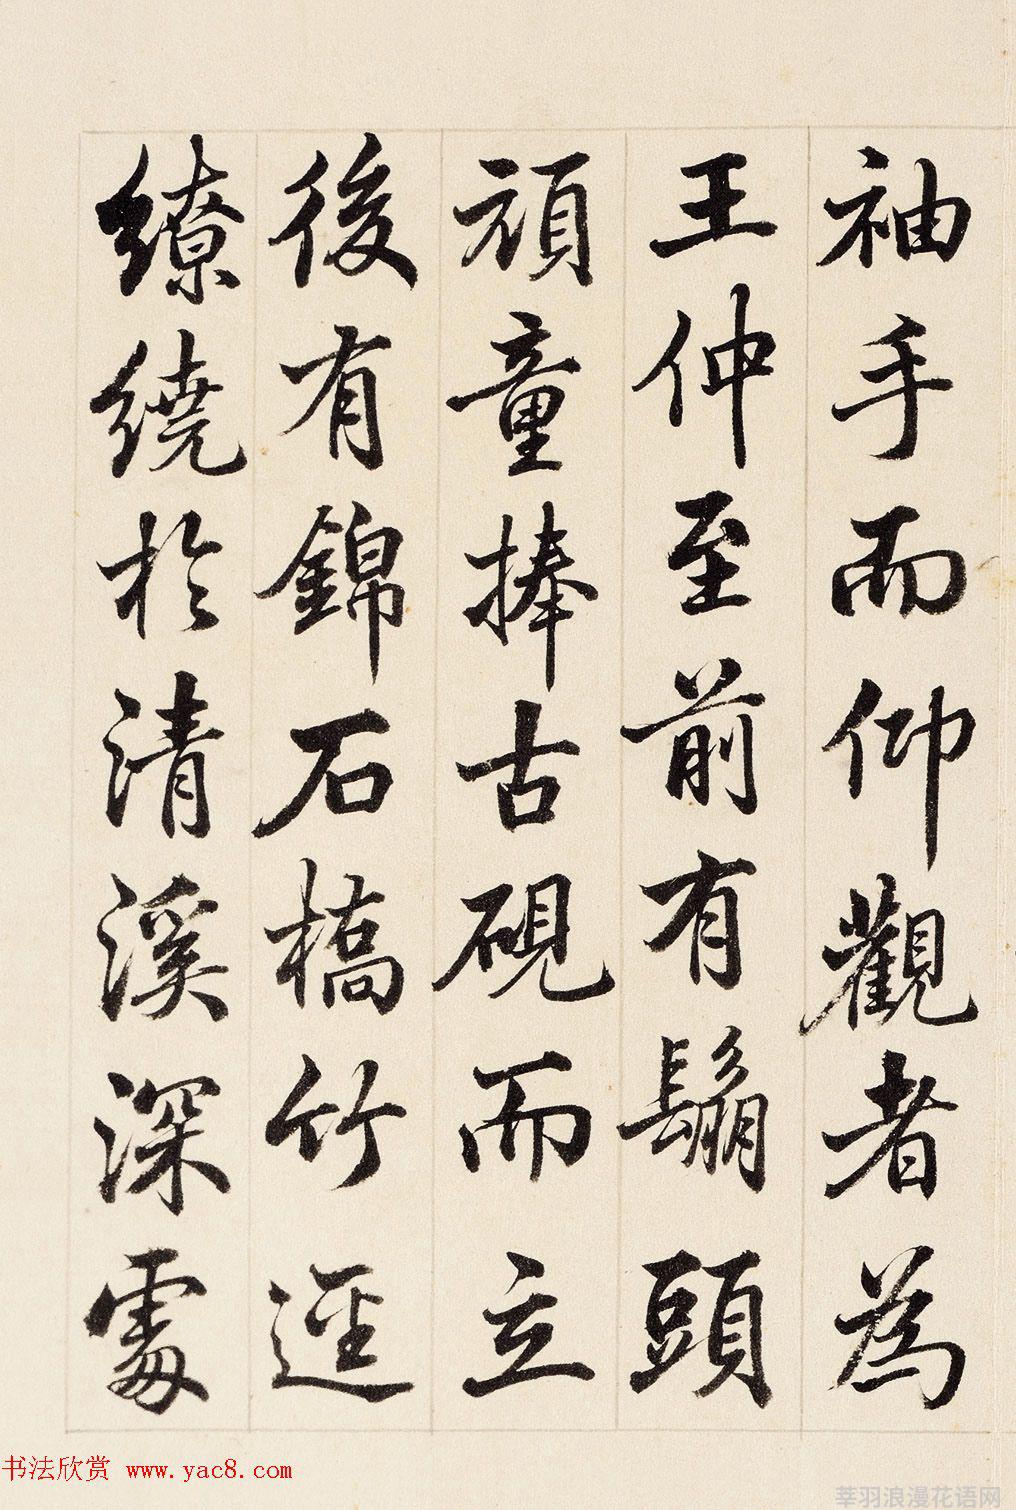 袖手而仰觀者為
王仲至前有鬅頭
頑童捧古硯而立
後有錦石橋竹逕
繚繞於清溪深處
书法欣赏 www.yac8.com
莘羽浪漫花语网